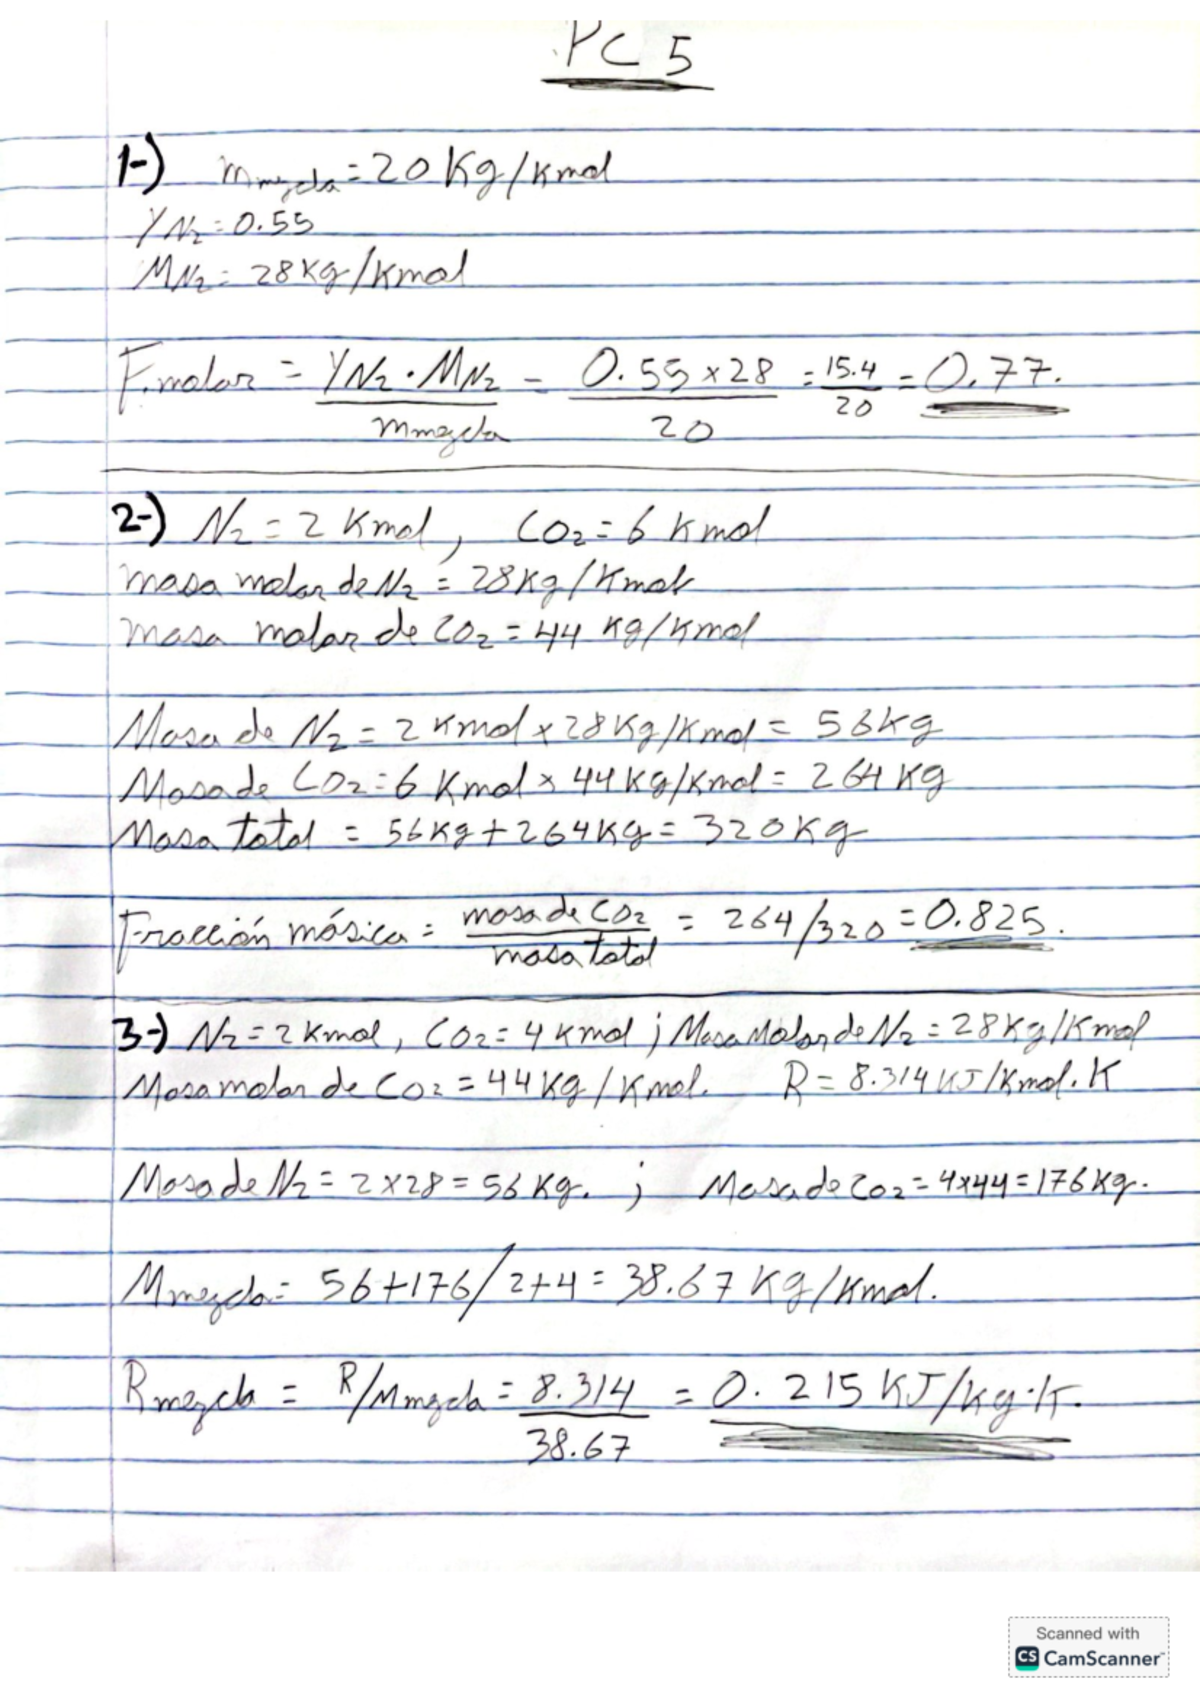 PC 5
1-) Mmezcla = 20 Kg/Kmol
YN₂ = 0.55
MN₂ = 28 Kg/Kmol
F.molar = YN₂ · MN₂ / Mmezcla = 0.55 x 28 / 20 = 15.4 / 20 = 0.77.
2-) N₂ = 2 Kmol, CO₂ = 6 Kmol
masa molar de N₂ = 28 Kg/Kmol
masa molar de CO₂ = 44 Kg/Kmol
Masa de N₂ = 2 Kmol x 28 Kg/Kmol = 56 kg
Masa de CO₂ = 6 Kmol x 44 Kg/Kmol = 264 Kg
Masa total = 56 Kg + 264 Kg = 320 Kg
Fracción másica = masa de CO₂ / masa total = 264/320 = 0.825.
3-) N₂ = 2 Kmol, CO₂ = 4 Kmol ; Masa Molar de N₂ = 28 Kg/Kmol
Masa molar de CO₂ = 44 Kg/Kmol. R = 8.314 KJ/Kmol.K
Masa de N₂ = 2 x 28 = 56 Kg. ; Masa de CO₂ = 4x44 = 176 Kg.
Mmezcla = 56+176/2+4 = 38.67 Kg/Kmol.
Rmezcla = R/Mmezcla = 8.314 / 38.67 = 0.215 KJ/kg·K.
Scanned with
CS CamScanner